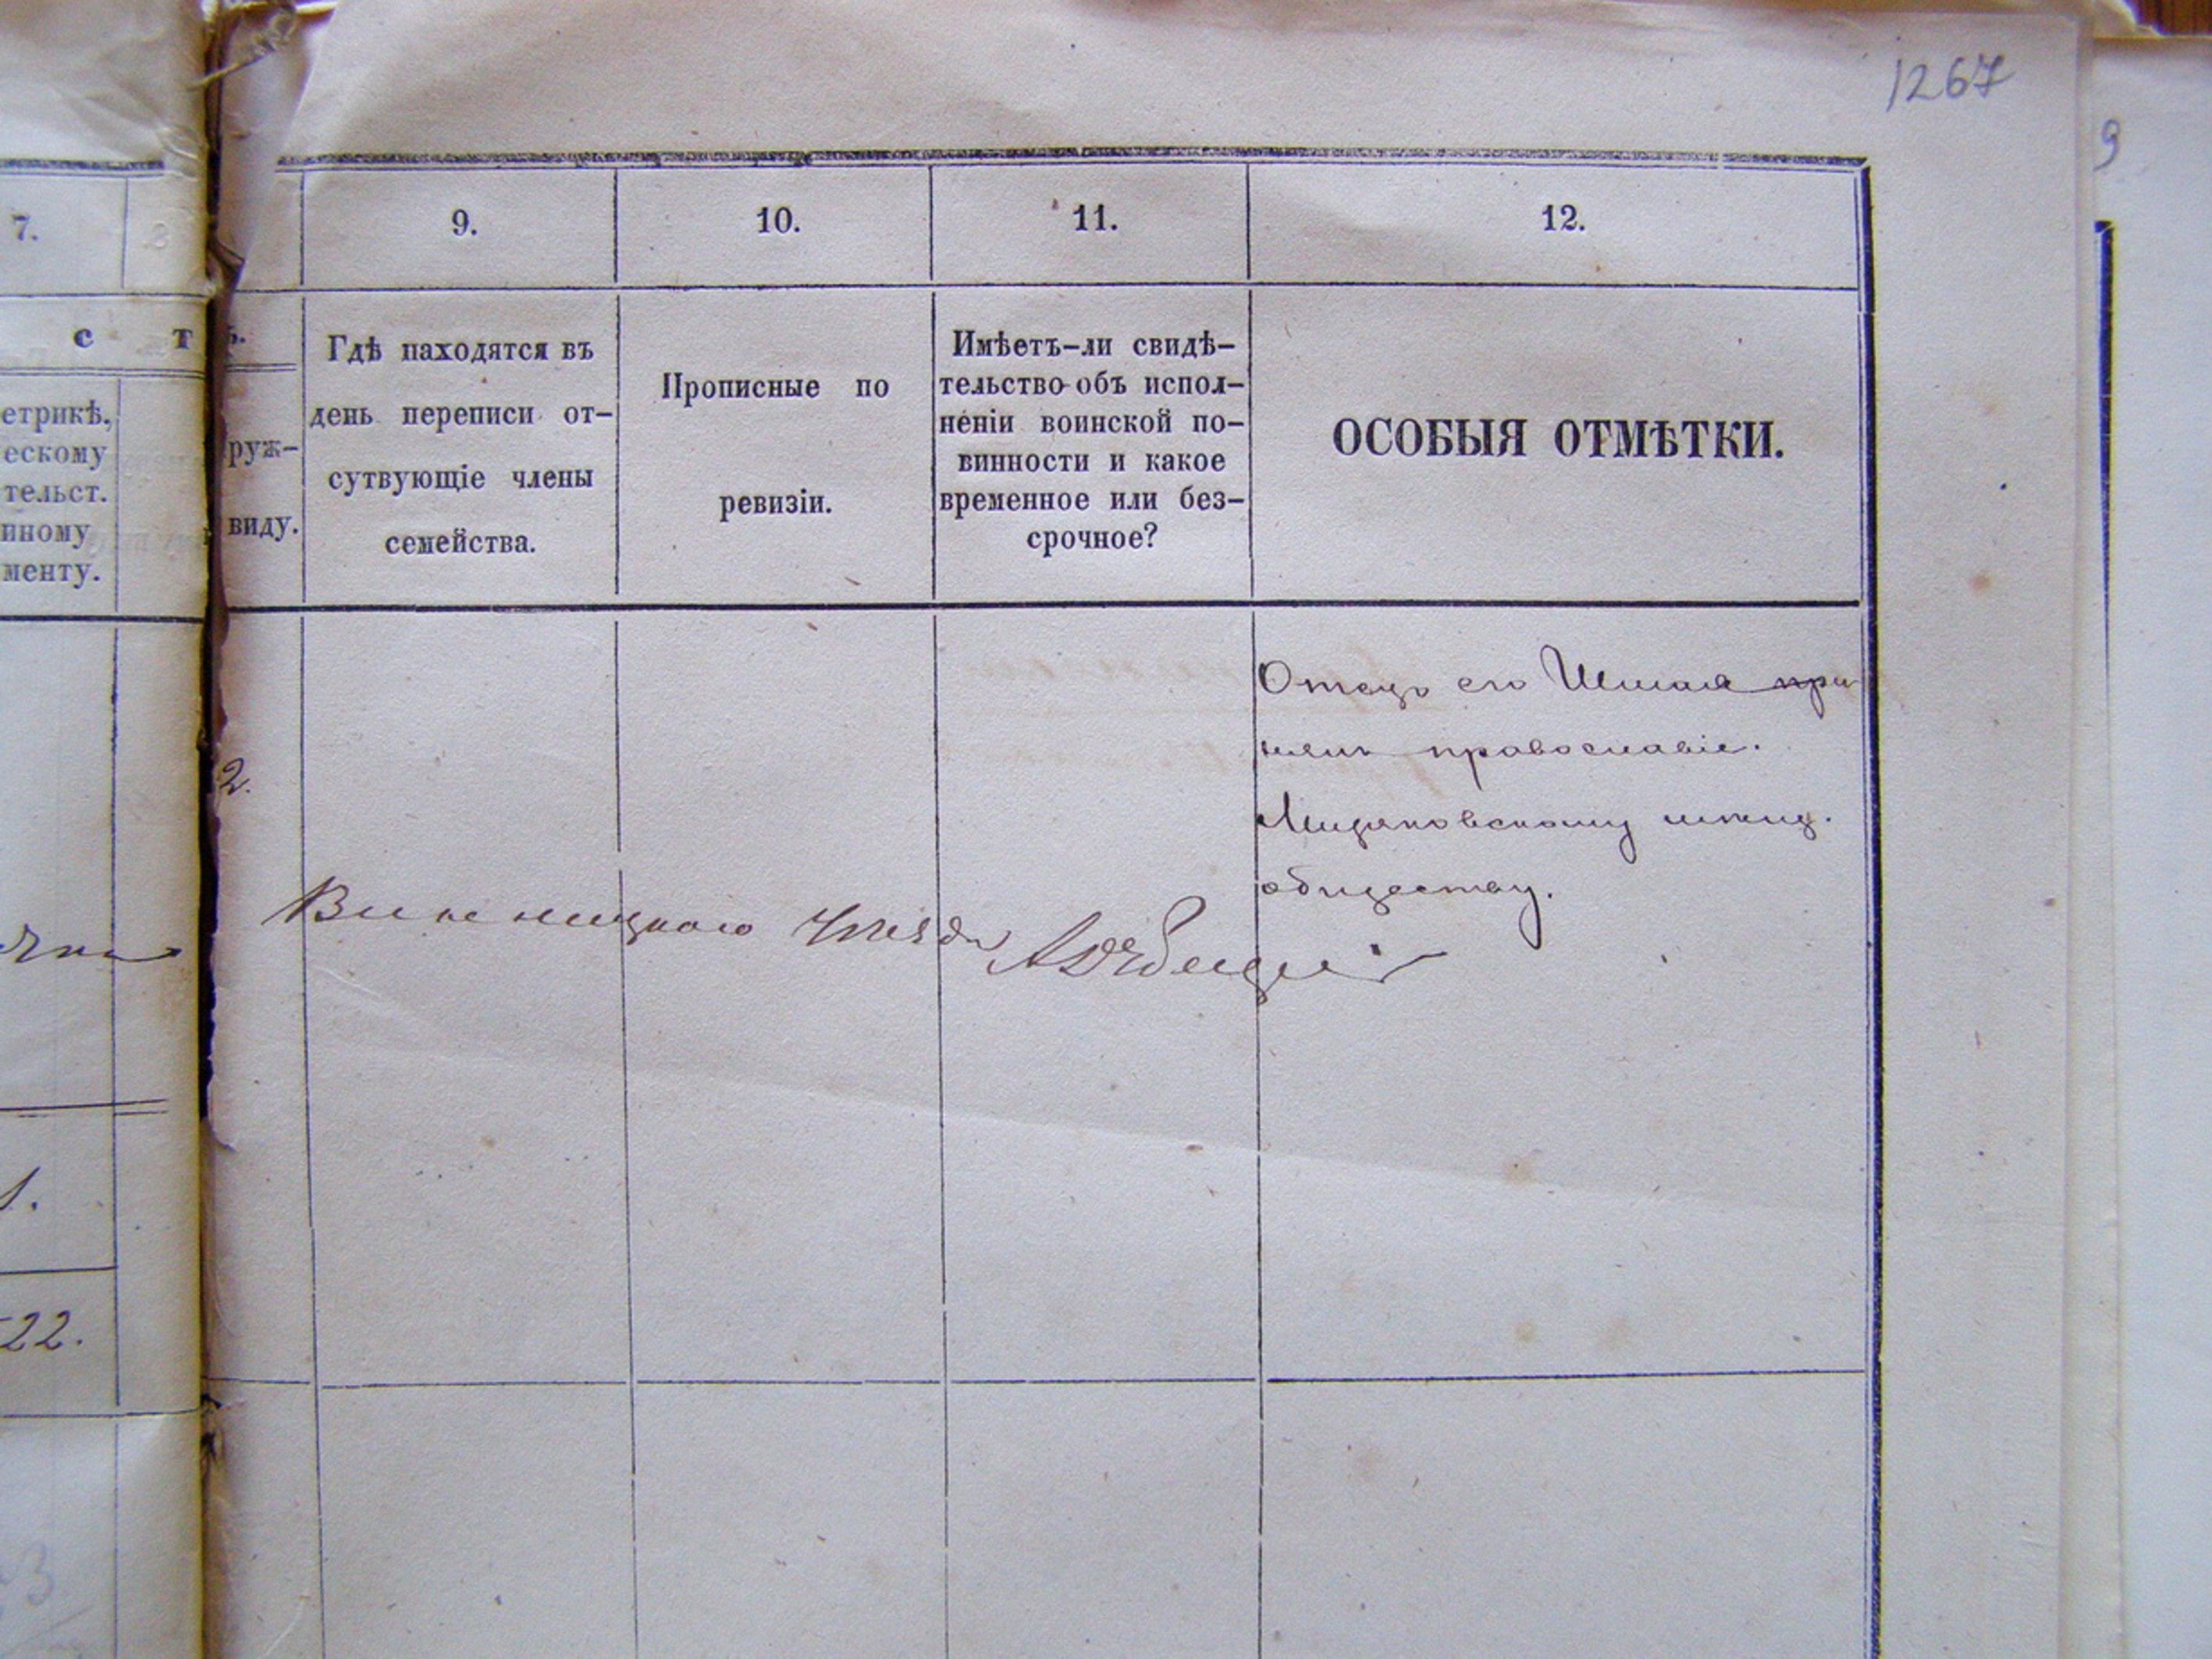 1267
9
7.
8
9.
10.
11.
12.
с т ь.
етрикѣ,
ескому
тельст.
иному
менту.
руж-
виду.
Гдѣ находятся въ
день переписи от-
сутвующіе члены
семейства.
Прописные по
ревизіи.
Имѣетъ-ли свидѣ-
тельство объ испол-
неніи воинской по-
винности и какое
временное или без-
срочное?
ОСОБЫЯ ОТМѢТКИ.
Отецъ его при
нялъ православіе.
обществу.
2.
Винницкого уѣзда
1.
22.
3